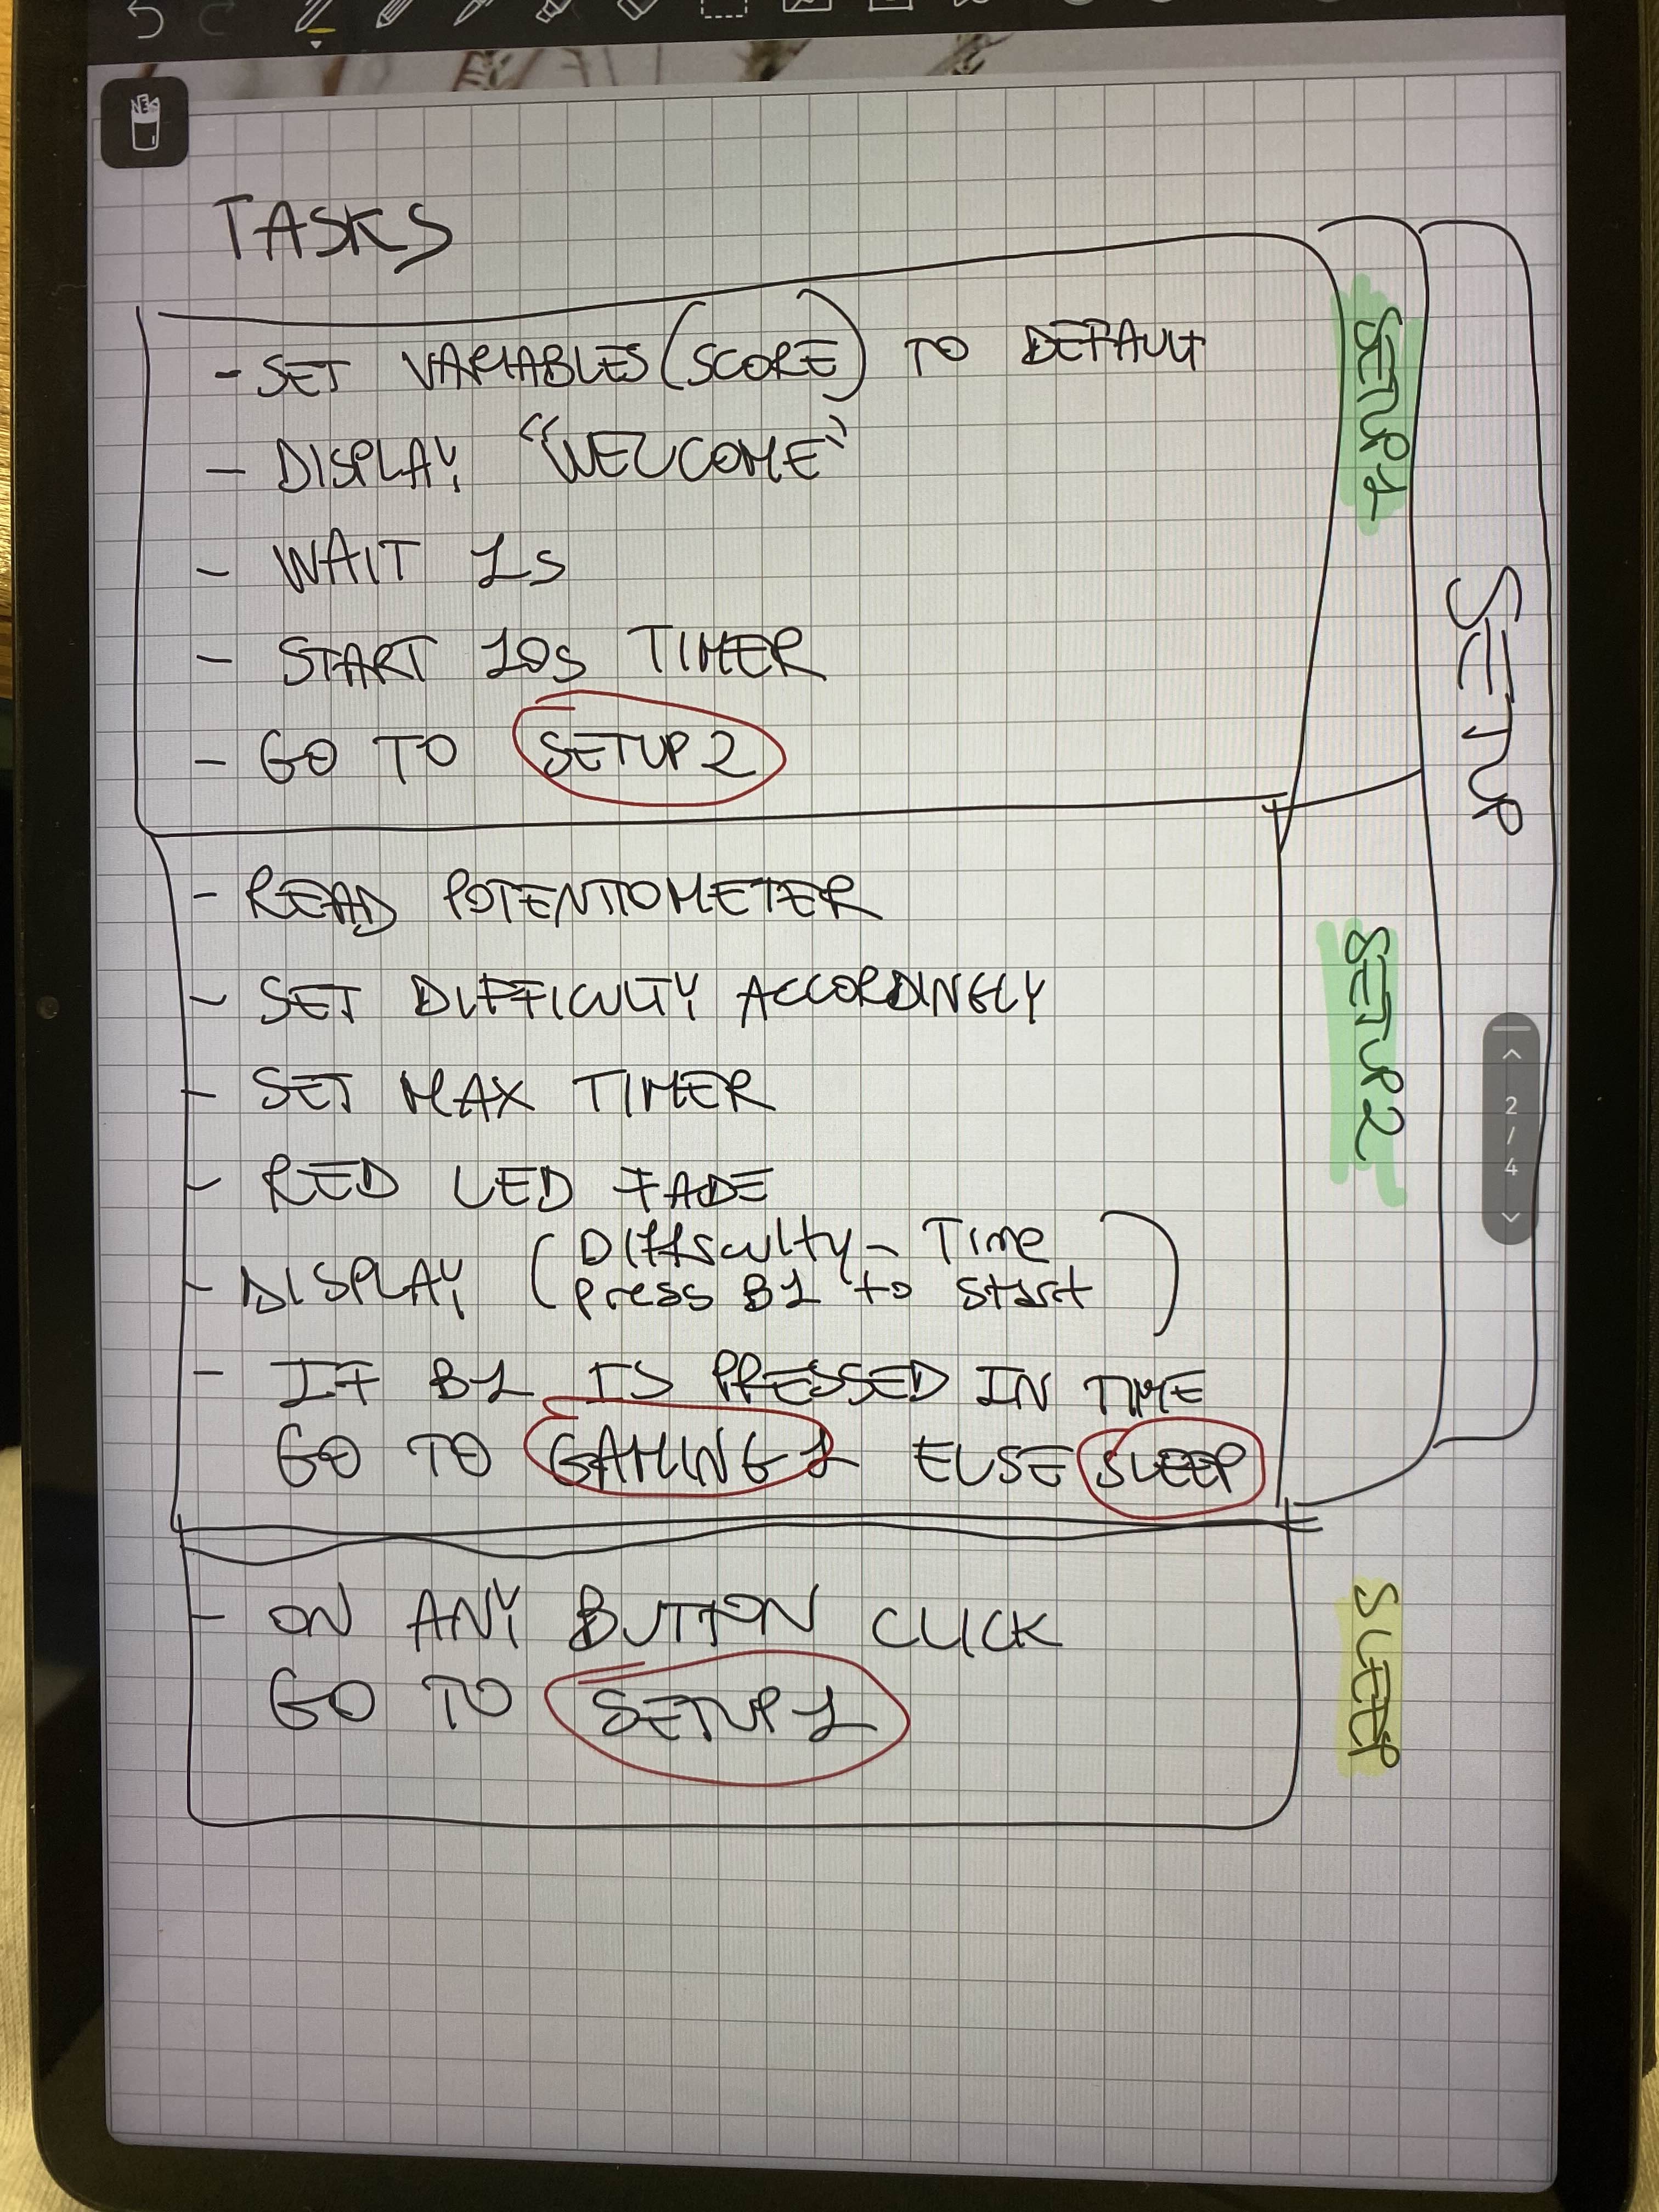 TASKS
- SET VARIABLES (SCORE) TO DEFAULT
- DISPLAY "WELCOME"
- WAIT 1s
- START 10s TIMER
- GO TO SETUP 2
SETUP 1
- READ POTENTIOMETER
- SET DIFFICULTY ACCORDINGLY
- SET MAX TIMER
- RED LED FADE
- DISPLAY (Difficulty - Time
press B1 to start)
- IF B1 IS PRESSED IN TIME
GO TO GAMING 1 ELSE SLEEP
SETUP 2
SETUP
- ON ANY BUTTON CLICK
GO TO SETUP 1
SLEEP
2
/
4